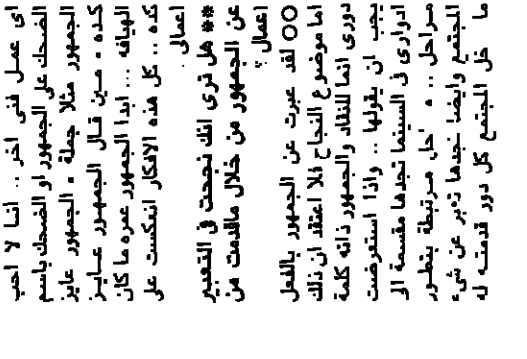 اى عمل فنى اخر .. انا لا احب
الضحك على الجمهور او الضحك باسم
الجمهور مثلا جملة « الجمهور عايز
كده » مين قال الجمهور عايز
الهيافه ... ابدا الجمهور عمره ما كان
كده .. كل هذه الافكار انعكست على
اعمالى .
** هل ترى انك نجحت فى التعبير
عن الجمهور من خلال ماقدمت من
اعمالى ..؟
○○ لقد عبرت عن الجمهور بالفعل
اما موضوع النجاح فلا اعتقد ان ذلك
دورى انما للنقاد والجمهور ذاته كلمة
يجب ان يقولها .. واذا استعرضت
ادوارى فى السينما تجدها مقسمة الى
مراحل .. مرتبطة بتطور
المجتمع وايضا تجدها تعبر عن شىء
ما المجتمع كل دور قدمته له